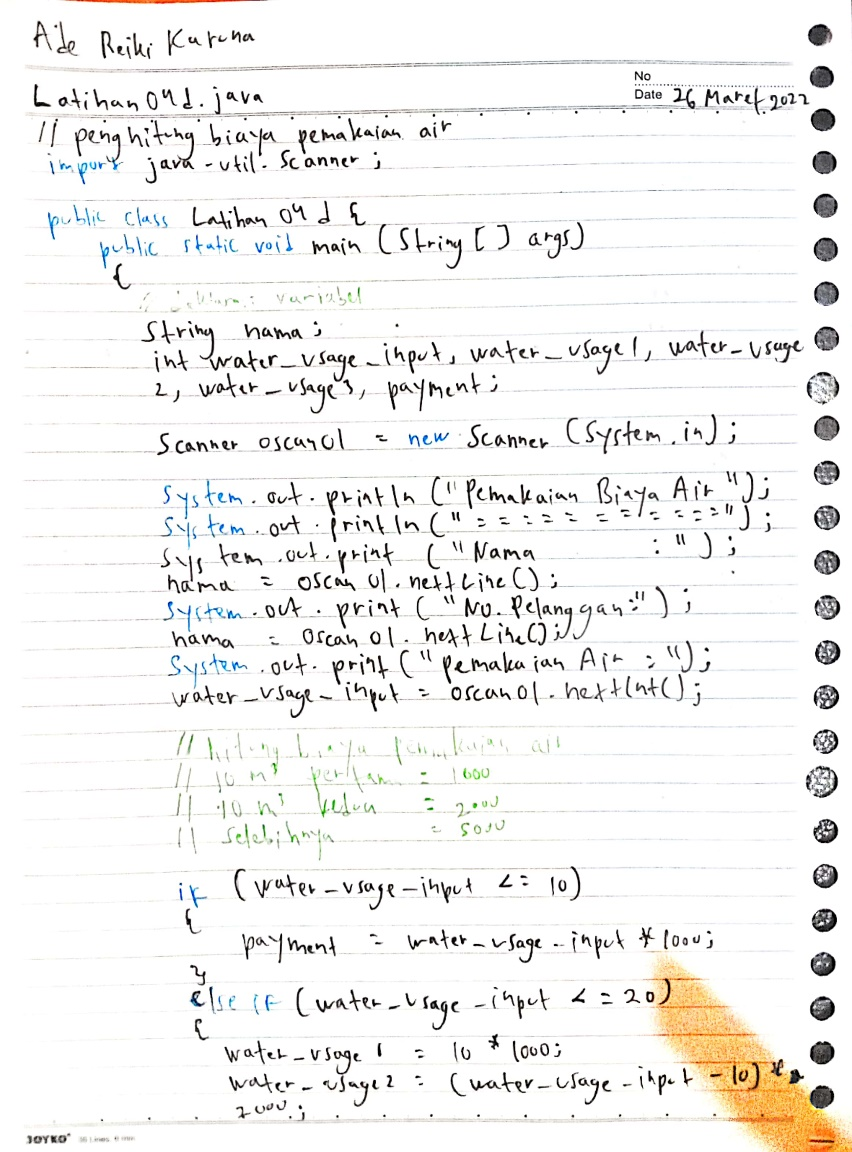 Ade Reiki Karuna
No
Latihan04d.java
Date 26 Maret 2022
// penghitung biaya pemakaian air
import java-util-Scanner;
public class Latihan 04 d {
public static void main (String [] args)
{
// variabel
String nama;
int water_usage_input, water_usage1, water_usage
2, water_usage3, payment;
Scanner oscan01 = new Scanner (System.in);
System.out.println ("Pemakaian Biaya Air");
System.out.println ("=============");
System.out.print ("Nama :");
nama = oscan01.nextLine();
System.out.print ("No. Pelanggan:");
nama = oscan01.nextLine();
System.out.print ("pemakaian Air :");
water_usage_input = oscan01.nextInt();
// hitung biaya pemakaian air
// 10 m³ pertama = 1000
// 10 m³ kedua = 2000
// selebihnya = 5000
if (water_usage_input <= 10)
{
payment = water_usage_input * 1000;
}
else if (water_usage_input <= 20)
{
water_usage 1 = 10 * 1000;
water_usage2 = (water_usage_input - 10) *
2000;
JOYKO